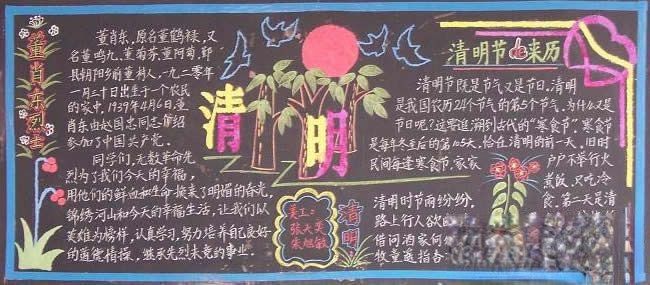 董肖东烈士
董肖东,原名董鹤禄,又
名董鸣九、董菊荪、董阿菊,鄞
县胡阳乡前董村人,一九二零年
一月二十日出生于一个农民
的家中,1939年4月6日董
肖东由赵国忠同志介绍
参加了中国共产党。
同学们,无数革命先
烈为了我们今天的幸福,
用他们的鲜血和生命换来了明媚的春光,
锦绣河山和今天的幸福生活,让我们以
英雄为榜样,认真学习,努力培养自己良好
的道德情操,继承先烈未竟的事业。
清明
美工:
张天昊
朱旭敏
清明
清明节的来历
清明节既是节气又是节日。清明
是我国农历24个节气的第5个节气,为什么又是
节日呢?这要追溯到古代的"寒食节"。寒食节
是每年冬至后的第105天,恰在清明的前一天,旧时
民间每逢寒食节,家家户户不举行火
煮饭,只吃冷
食。第一天是清
清明时节雨纷纷,
路上行人欲
借问酒家何
牧童遥指